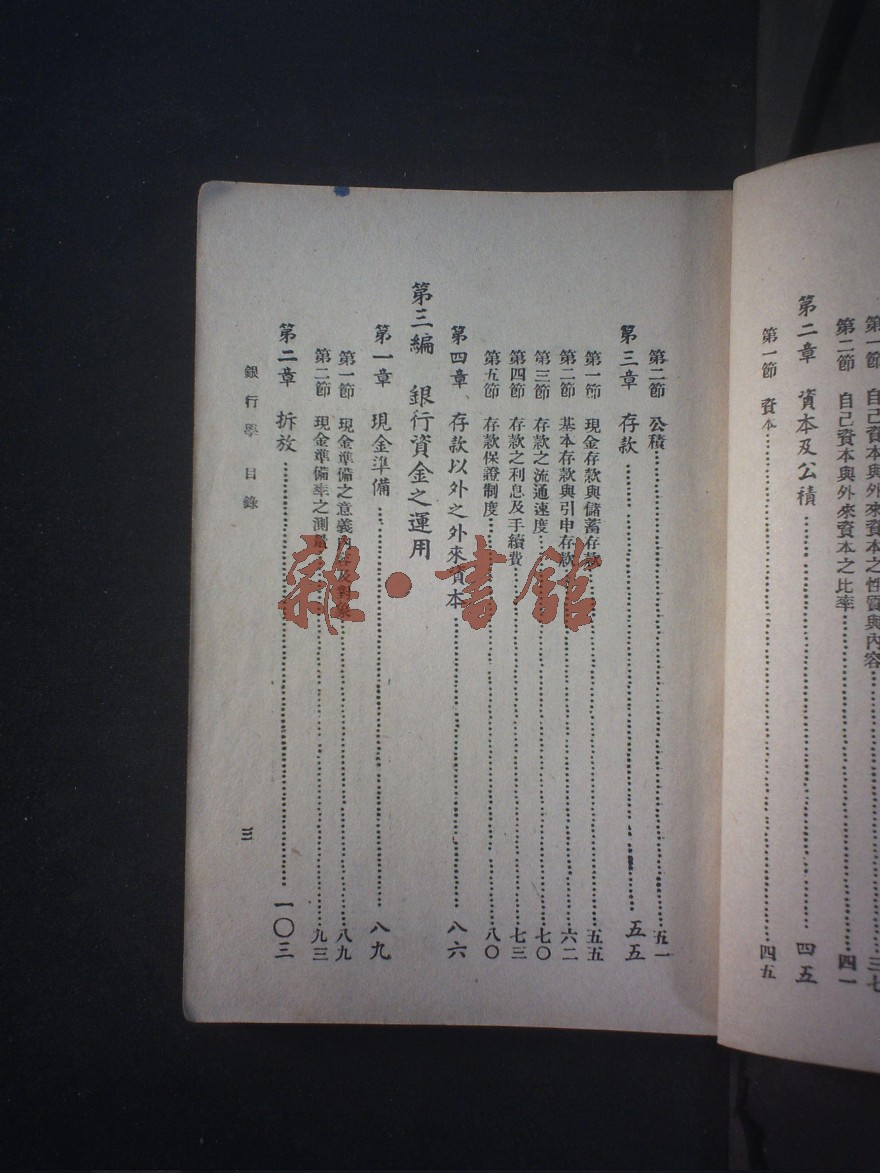 第一節 自己資本與外來資本之性質與內容……三七
第二節 自己資本與外來資本之比率……四一
第二章 資本及公積……四五
第一節 資本……四五
第二節 公積……五一
第三章 存款……五五
第一節 現金存款與儲蓄存款……五五
第二節 基本存款與引申存款……六二
第三節 存款之流通速度……七〇
第四節 存款之利息及手續費……七三
第五節 存款保證制度……八〇
第四章 存款以外之外來資本……八六
第三編 銀行資金之運用
第一章 現金準備……八九
第一節 現金準備之意義內容及對象……八九
第二節 現金準備率之測量……九三
第二章 拆放……一〇三
銀行學 目錄 三
雜·書館